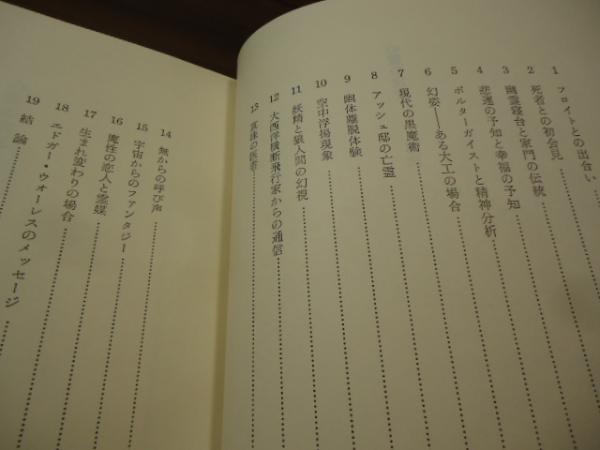 1 フロイトとの出合い
2 死者との初会見
3 幽霊寝台と家門の伝統
4 悲運の予知と幸福の予知
5 ポルターガイストと精神分析
6 幻姿——ある大工の場合
7 現代の黒魔術
8 アッシュ邸の亡霊
9 幽体離脱体験
10 空中浮揚現象
11 妖精と狼人間の幻視
12 大西洋横断飛行家からの通信
13 の医者
14 無からの呼び声
15 宇宙からのファンタジー
16 魔性の恋人と霊媒
17 生まれ変わりの場合
18 エドガー・ウォーレスのメッセージ
19 結論